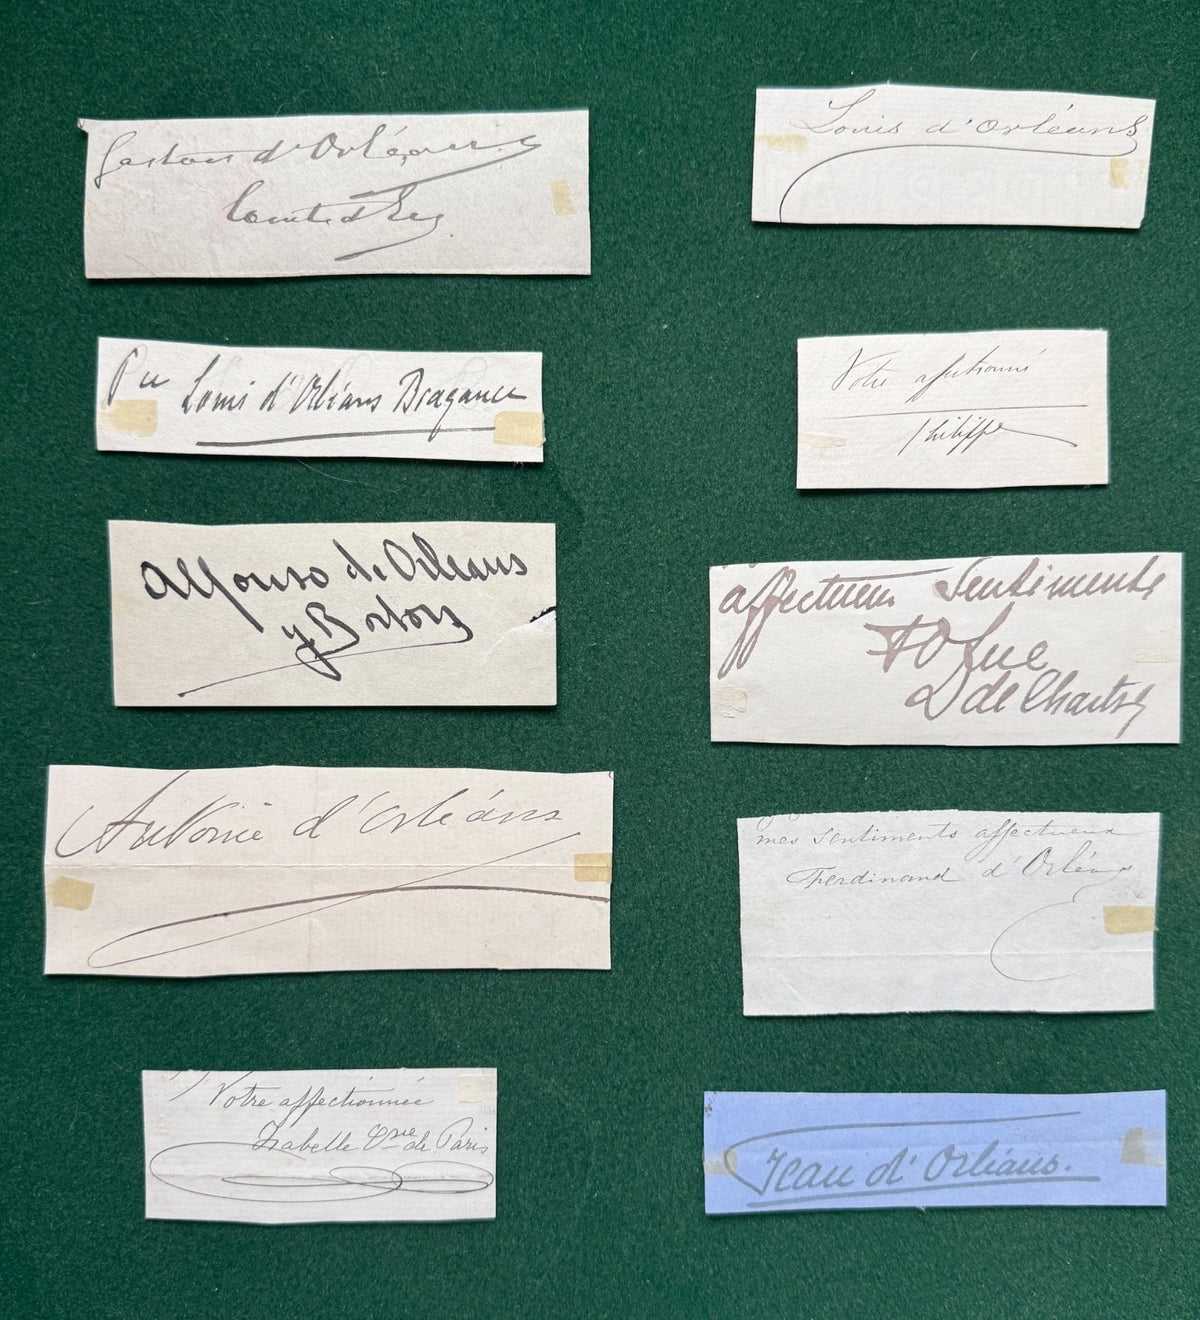 Gaston d'Orléans
Comte d'Eu
Louis d'Orléans
Pce Louis d'Orléans Bragance
Votre affectionné
Philippe
Alfonso de Orleans
y Borbon
affectueux Sentiments
D de Chartres
Antoine d'Orléans
mes sentiments affectueux
Ferdinand d'Orléans
Votre affectionnée
Isabelle Csse de Paris
Jean d'Orléans.